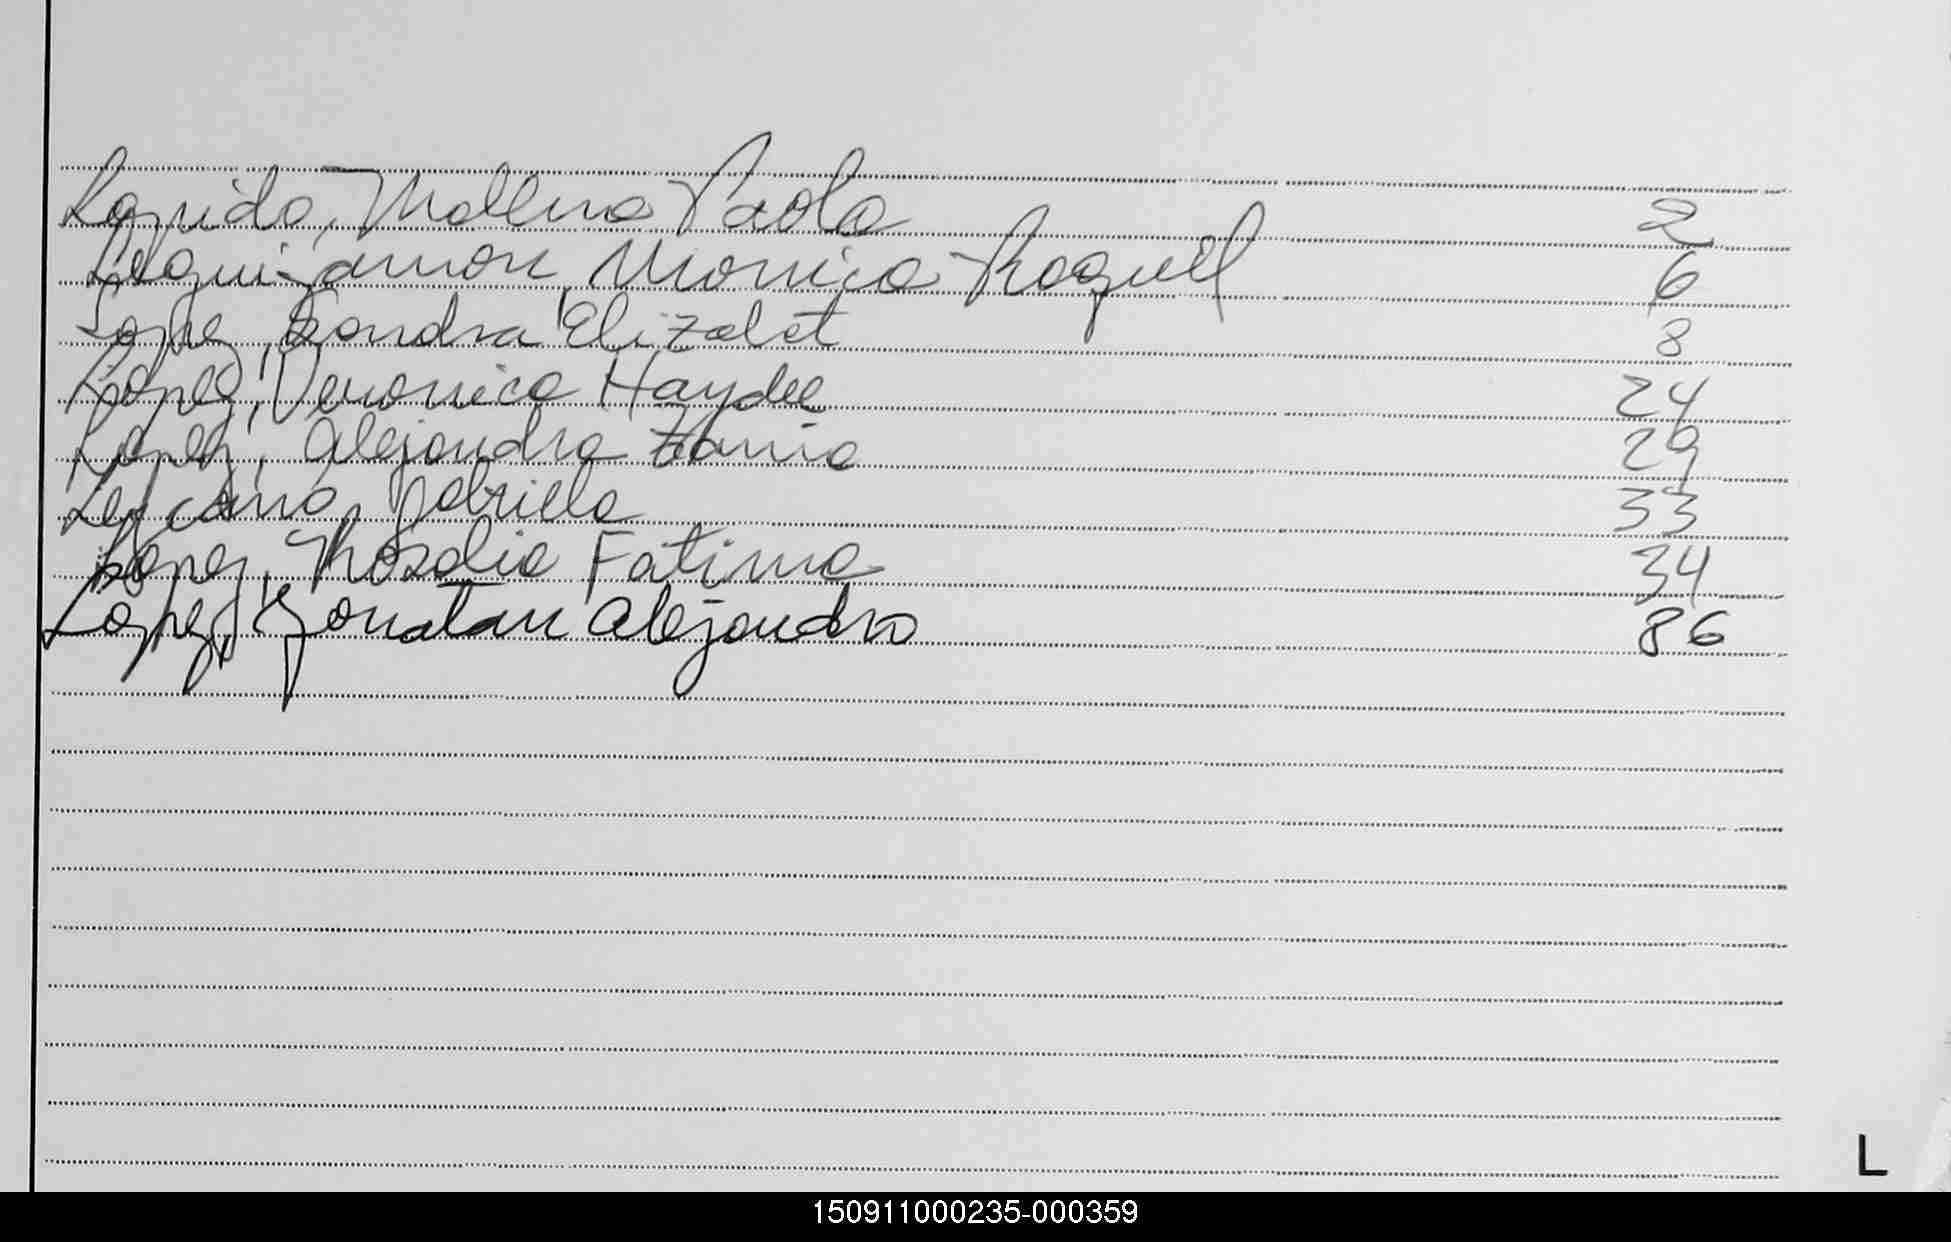 Laprida, Mallena Paola 2
Leguizamon, Monica Raquel 6
Lopez, Sandra Elizabet 8
Lopez, Veronica Haydee 24
Lopez, Alejandra 29
Lezcano, Gabriela 33
Lopez, Rosalia Fatima 34
Lopez, Jonatan Alejandro 86
L
150911000235-000359